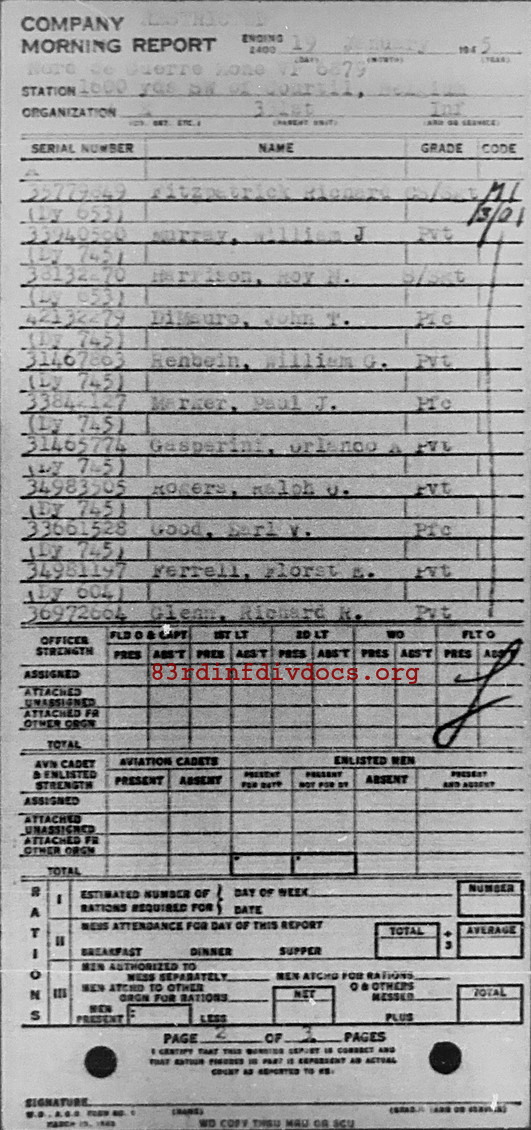 COMPANY RESTRICTED
MORNING REPORT ENDING 2400 19 January 1945
(DAY) (MONTH) (YEAR)
Nord de Guerre Zone VP 6879
STATION 1600 yds SW of Courtil, Belgium
ORGANIZATION 331st Inf
(CO. DET. ETC.) (PARENT UNIT) (ARM OR SERVICE)
SERIAL NUMBER NAME GRADE CODE
A
35779849 Fitzpatrick Richard C S/Sgt
(Dy 653)
33940560 Murray, William J Pvt
(Dy 745)
38132270 Harrison, Roy N. S/Sgt
(Dy 653)
42132279 DiMauro, John T. Pfc
(Dy 745)
31467863 Rehbein, William G. Pvt
(Dy 745)
33842127 Marker, Paul J. Pfc
(Dy 745)
31465774 Gasparini, Orlando A Pvt
(Dy 745)
34983505 Rogers, Ralph Pvt
(Dy 745)
33661528 Good, Earl V. Pfc
(Dy 745)
34981197 Ferrell, Florst E. Pvt
(Dy 604)
36972664 Glenn, Richard R. Pvt
OFFICER STRENGTH FLD O & CAPT 1ST LT 2D LT WO FLT O
PRES ABS'T PRES ABS'T PRES ABS'T PRES ABS'T PRES ABS'T
ASSIGNED 83rdinfdivdocs.org
ATTACHED UNASSIGNED
ATTACHED FR OTHER ORGN
TOTAL
AVN CADET & ENLISTED STRENGTH AVIATION CADETS ENLISTED MEN
PRESENT ABSENT PRESENT FOR DUTY PRESENT NOT FOR DY ABSENT PRESENT AND ABSENT
ASSIGNED
ATTACHED UNASSIGNED
ATTACHED FR OTHER ORGN
TOTAL
RATIONS
I ESTIMATED NUMBER OF RATIONS REQUIRED FOR DAY OF WEEK DATE NUMBER
II MESS ATTENDANCE FOR DAY OF THIS REPORT TOTAL ÷ 3 AVERAGE
BREAKFAST DINNER SUPPER
III MEN AUTHORIZED TO MESS SEPARATELY MEN ATCHD FOR RATIONS
MEN ATCHD TO OTHER ORGN FOR RATIONS NET O & OTHERS MESSED TOTAL
MEN PRESENT LESS PLUS
PAGE 2 OF 3 PAGES
I CERTIFY THAT THIS MORNING REPORT IS CORRECT AND
THAT RATION FIGURES IN PART III REPRESENT AN ACTUAL
COUNT AS REPORTED TO ME.
SIGNATURE
W.D., A.G.O. FORM NO. 1 (NAME) (GRADE & ARM OR SERVICE)
MARCH 15, 1943 WD COPY THRU MRU OR SCU